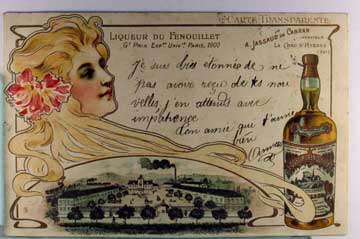 CARTE TRANSPARENTE
LIQUEUR DU FENOUILLET
Gd PRIX EXPon UNIVlle PARIS, 1900
A. JASSAUD DE CABRAN
INVENTEUR
LA CRAU D'HYERES
(VAR)
Je suis bien étonnée de ne
pas avoir reçu de tes nou
velles, j'en attends avec
impatience
ton amie qui t'aime
bien